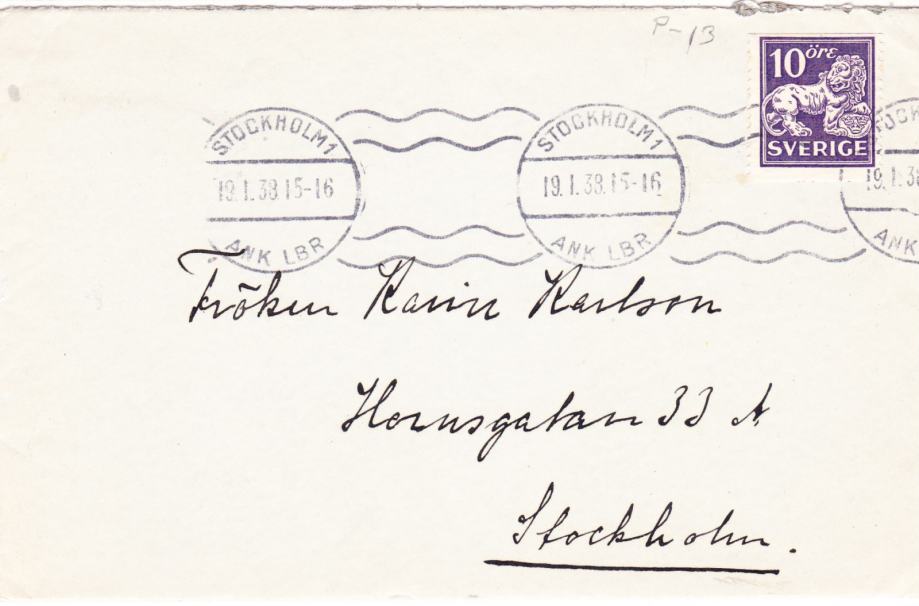 P-13
10 öre
SVERIGE
STOCKHOLM 1
19.1.38.15-16
ANK LBR
STOCKHOLM 1
19.1.38.15-16
ANK LBR
STOCK
19.1.38
ANK
Fröken Karin Karlson
Hornsgatan 33 A
Stockholm.